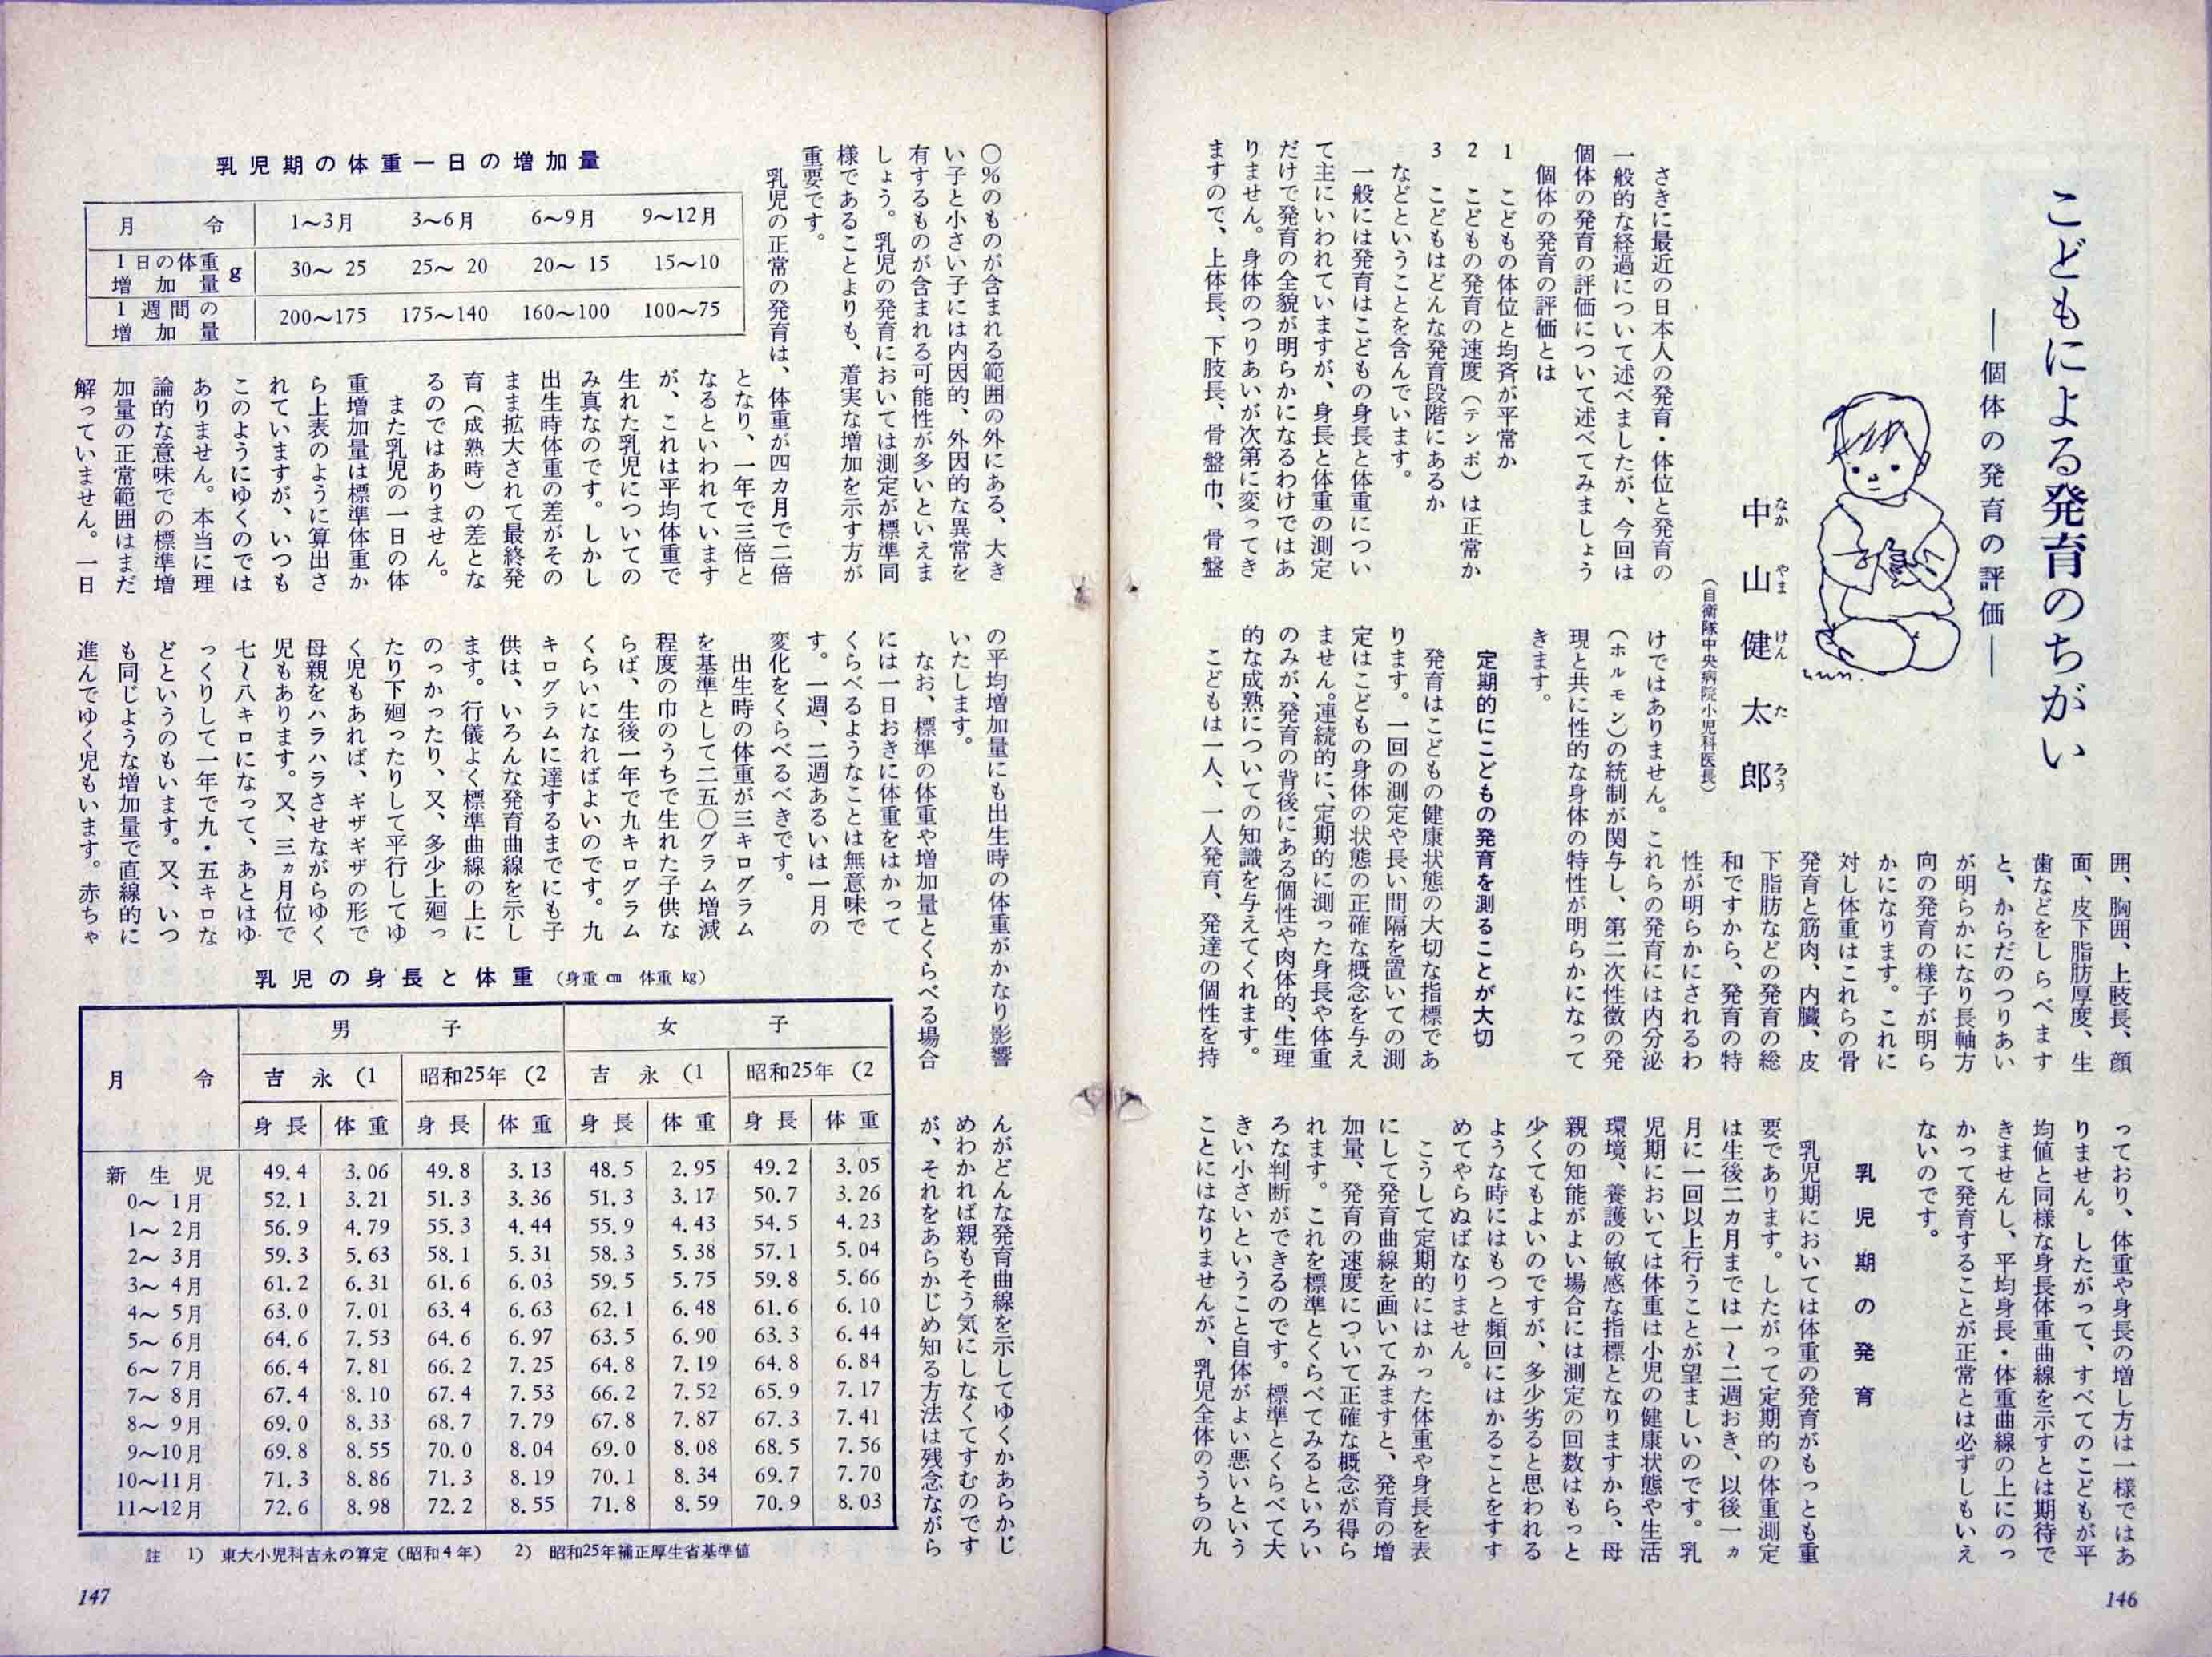 こどもによる発育のちがい
―個体の発育の評価―
中山健太郎
なかやまけんたろう
(自衛隊中央病院小児科医長)
さきに最近の日本人の発育・体位と発育の
一般的な経過について述べましたが、今回は
個体の発育の評価について述べてみましょう
個体の発育の評価とは
1 こどもの体位と均斉が平常か
2 こどもの発育の速度(テンポ)は正常か
3 こどもはどんな発育段階にあるか
などということを含んでいます。
一般には発育はこどもの身長と体重につい
て主にいわれていますが、身長と体重の測定
だけで発育の全貌が明らかになるわけではあ
りません。身体のつりあいが次第に変ってき
ますので、上体長、下肢長、骨盤巾、骨盤
囲、胸囲、上肢長、顔
面、皮下脂肪厚度、生
歯などをしらべます
と、からだのつりあい
が明らかになり長軸方
向の発育の様子が明ら
かになります。これに
対し体重はこれらの骨
発育と筋肉、内臓、皮
下脂肪などの発育の総
和ですから、発育の特
性が明らかにされるわ
けではありません。これらの発育には内分泌
(ホルモン)の統制が関与し、第二次性徴の発
現と共に性的な身体の特性が明らかになって
きます。
定期的にこどもの発育を測ることが大切
発育はこどもの健康状態の大切な指標であ
ります。一回の測定や長い間隔を置いての測
定はこどもの身体の状態の正確な概念を与え
ません。連続的に、定期的に測った身長や体重
のみが、発育の背後にある個性や肉体的、生理
的な成熟についての知識を与えてくれます。
こどもは一人、一人発育、発達の個性を持
っており、体重や身長の増し方は一様ではあ
りません。したがって、すべてのこどもが平
均値と同様な身長体重曲線を示すとは期待で
きませんし、平均身長・体重曲線の上にのっ
かって発育することが正常とは必ずしもいえ
ないのです。
乳児期の発育
乳児期においては体重の発育がもっとも重
要であります。したがって定期的の体重測定
は生後二カ月までは一～二週おき、以後一ヵ
月に一回以上行うことが望ましいのです。乳
児期においては体重は小児の健康状態や生活
環境、養護の敏感な指標となりますから、母
親の知能がよい場合には測定の回数はもっと
少くてもよいのですが、多少劣ると思われる
ような時にはもつと頻回にはかることをすす
めてやらぬばなりません。
こうして定期的にはかった体重や身長を表
にして発育曲線を画いてみますと、発育の増
加量、発育の速度について正確な概念が得ら
れます。これを標準とくらべてみるといろい
ろな判断ができるのです。標準とくらべて大
きい小さいということ自体がよい悪いという
ことにはなりませんが、乳児全体のうちの九
146
〇%のものが含まれる範囲の外にある、大き
い子と小さい子には内因的、外因的な異常を
有するものが含まれる可能性が多いといえま
しょう。乳児の発育においては測定が標準同
様であることよりも、着実な増加を示す方が
重要です。
乳児の正常の発育は、体重が四カ月で二倍
となり、一年で三倍と
なるといわれています
が、これは平均体重で
生れた乳児についての
み真なのです。しかし
出生時体重の差がその
まま拡大されて最終発
育(成熟時)の差とな
るのではありません。
また乳児の一日の体
重増加量は標準体重か
ら上表のように算出さ
れていますが、いつも
このようにゆくのでは
ありません。本当に理
論的な意味での標準増
加量の正常範囲はまだ
解っていません。一日
乳児期の体重一日の増加量
月令 1～3月 3～6月 6～9月 9～12月
1日の体重増加量 g 30～25 25～20 20～15 15～10
1週間の増加量 200～175 175～140 160～100 100～75
の平均増加量にも出生時の体重がかなり影響
いたします。
なお、標準の体重や増加量とくらべる場合
には一日おきに体重をはかって
くらべるようなことは無意味で
す。一週、二週あるいは一月の
変化をくらべるべきです。
出生時の体重が三キログラム
を基準として二五〇グラム増減
程度の巾のうちで生れた子供な
らば、生後一年で九キログラム
くらいになればよいのです。九
キログラムに達するまでにも子
供は、いろんな発育曲線を示し
ます。行儀よく標準曲線の上に
のっかったり、又、多少上廻っ
たり下廻ったりして平行してゆ
く児もあれば、ギザギザの形で
母親をハラハラさせながらゆく
児もあります。又、三ヵ月位で
七～八キロになって、あとはゆ
っくりして一年で九・五キロな
どというのもいます。又、いつ
も同じような増加量で直線的に
進んでゆく児もいます。赤ちゃ
んがどんな発育曲線を示してゆくかあらかじ
めわかれば親もそう気にしなくてすむのです
が、それをあらかじめ知る方法は残念ながら
乳児の身長と体重 (身重 cm 体重 kg)
月令 男子 女子
吉永(1 昭和25年(2 吉永(1 昭和25年(2
身長 体重 身長 体重 身長 体重 身長 体重
新生児 49.4 3.06 49.8 3.13 48.5 2.95 49.2 3.05
0～1月 52.1 3.21 51.3 3.36 51.3 3.17 50.7 3.26
1～2月 56.9 4.79 55.3 4.44 55.9 4.43 54.5 4.23
2～3月 59.3 5.63 58.1 5.31 58.3 5.38 57.1 5.04
3～4月 61.2 6.31 61.6 6.03 59.5 5.75 59.8 5.66
4～5月 63.0 7.01 63.4 6.63 62.1 6.48 61.6 6.10
5～6月 64.6 7.53 64.6 6.97 63.5 6.90 63.3 6.44
6～7月 66.4 7.81 66.2 7.25 64.8 7.19 64.8 6.84
7～8月 67.4 8.10 67.4 7.53 66.2 7.52 65.9 7.17
8～9月 69.0 8.33 68.7 7.79 67.8 7.87 67.3 7.41
9～10月 69.8 8.55 70.0 8.04 69.0 8.08 68.5 7.56
10～11月 71.3 8.86 71.3 8.19 70.1 8.34 69.7 7.70
11～12月 72.6 8.98 72.2 8.55 71.8 8.59 70.9 8.03
註 1) 東大小児科吉永の算定(昭和4年) 2) 昭和25年補正厚生省基準値
147